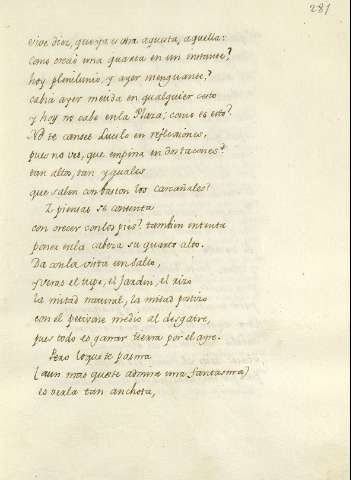 281
vive dioz, que ya es otra aquesta, aquella:
como creció una quarta en un instante?
hoy plenilunio, y ayer menguante?
cabia ayer metida en qualquier cesto
y hoy no cabe en la Plaza; como es esto?
No te canses Lucilo en reflexiones,
pues no ves, que empina en dos tacones
tan altos, tan yguales
que salen con baston los carcañales?
Y piensas se contenta
con crecer con los pies? tambien intenta
poner en la cabeza su quarto alto.
Da con la vista un salto,
y veras el tupe, el Jardin, el rizo
la mitad natural, la mitad postizo
con el petivare medio al desgaire,
pues todo es ganar tierra por el ayre.
Pero lo que te pasma
(aun mas que te admire una fantasma)
es verla tan anchota,